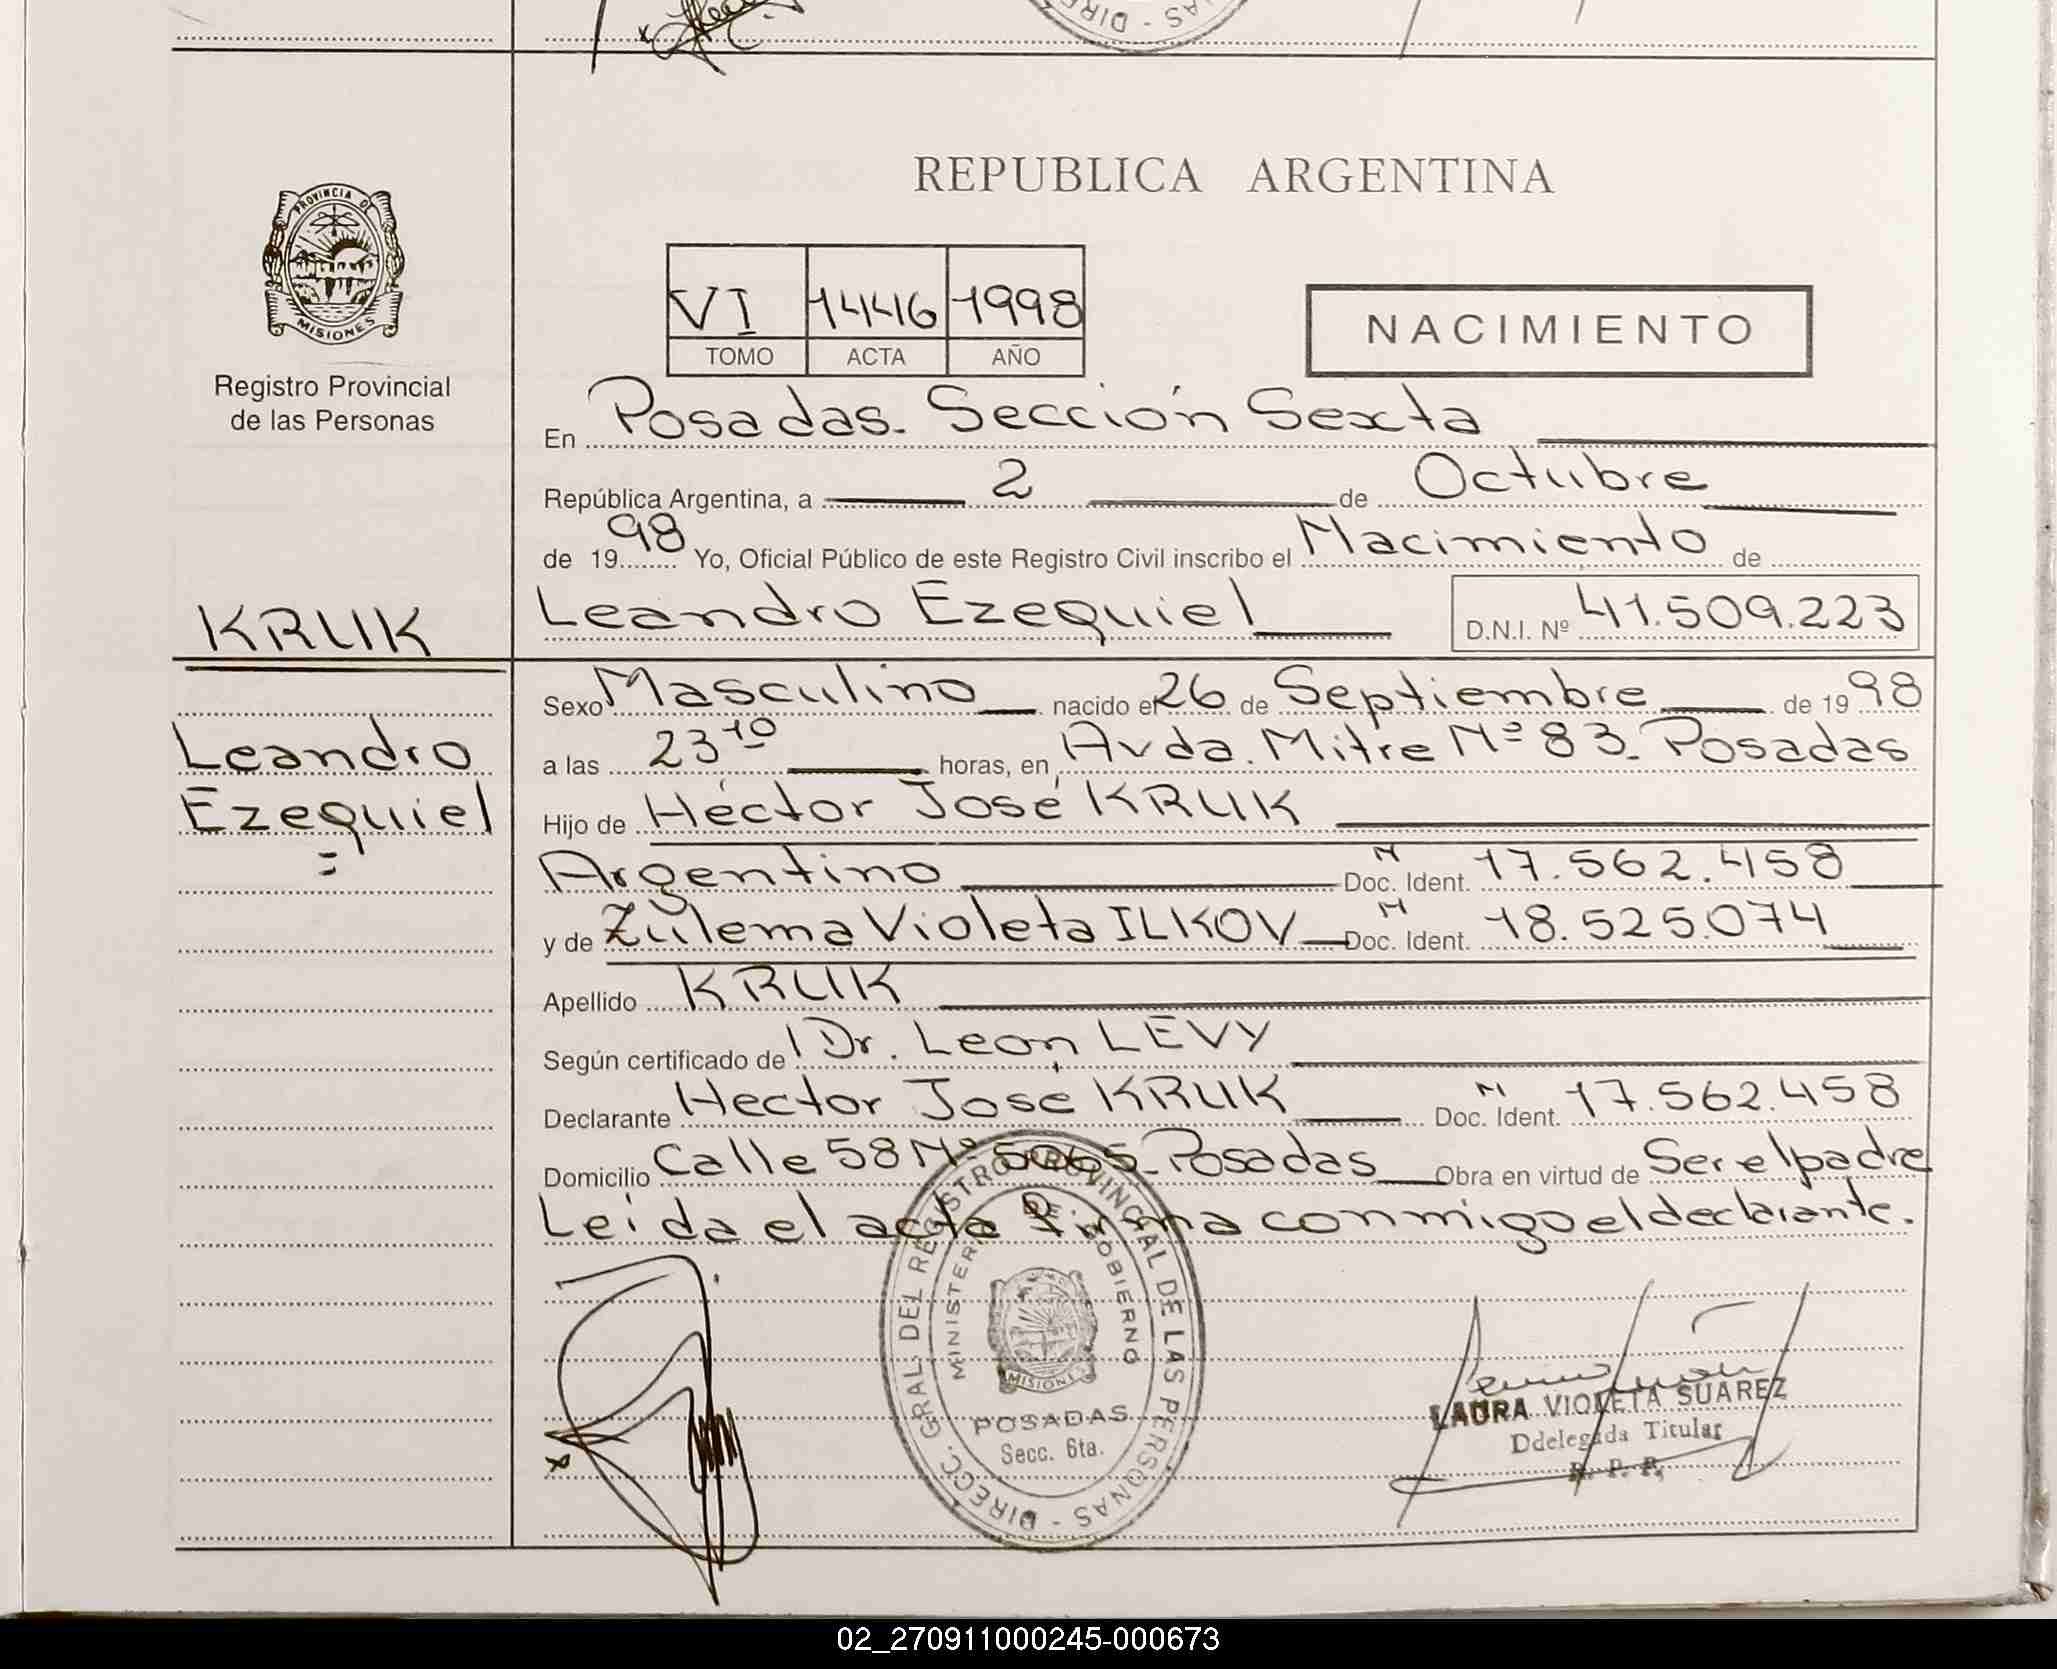 REPUBLICA ARGENTINA
PROVINCIA DE
MISIONES
Registro Provincial
de las Personas
VI 1446 1998
TOMO ACTA AÑO
NACIMIENTO
En Posadas. Sección Sexta
República Argentina, a 2 de Octubre
de 1998 Yo, Oficial Público de este Registro Civil inscribo el Nacimiento de
KRUK
Leandro Ezequiel D.N.I. Nº 41.509.223
Sexo Masculino nacido el 26 de Septiembre de 1998
Leandro
a las 23 10 horas, en Avda. Mitre Nº 83. Posadas
Ezequiel
Hijo de Héctor José KRUK
Argentino N Doc. Ident. 17.562.458
y de Zulema Violeta ILKOV N Doc. Ident. 18.525.074
Apellido KRUK
Según certificado de Dr. Leon LEVY
Declarante Hector José KRUK N Doc. Ident. 17.562.458
Domicilio Calle 58 Nº 5065. Posadas Obra en virtud de Ser el padre
Leída el acta firma conmigo el declarante.
DIRECC. GRAL. DEL REGISTRO PROVINCIAL DE LAS PERSONAS
MINISTERIO DE GOBIERNO
MISIONES
POSADAS
Secc. 6ta.
LAURA VIOLETA SUAREZ
Ddelegada Titular
R. P. P.
02_270911000245-000673